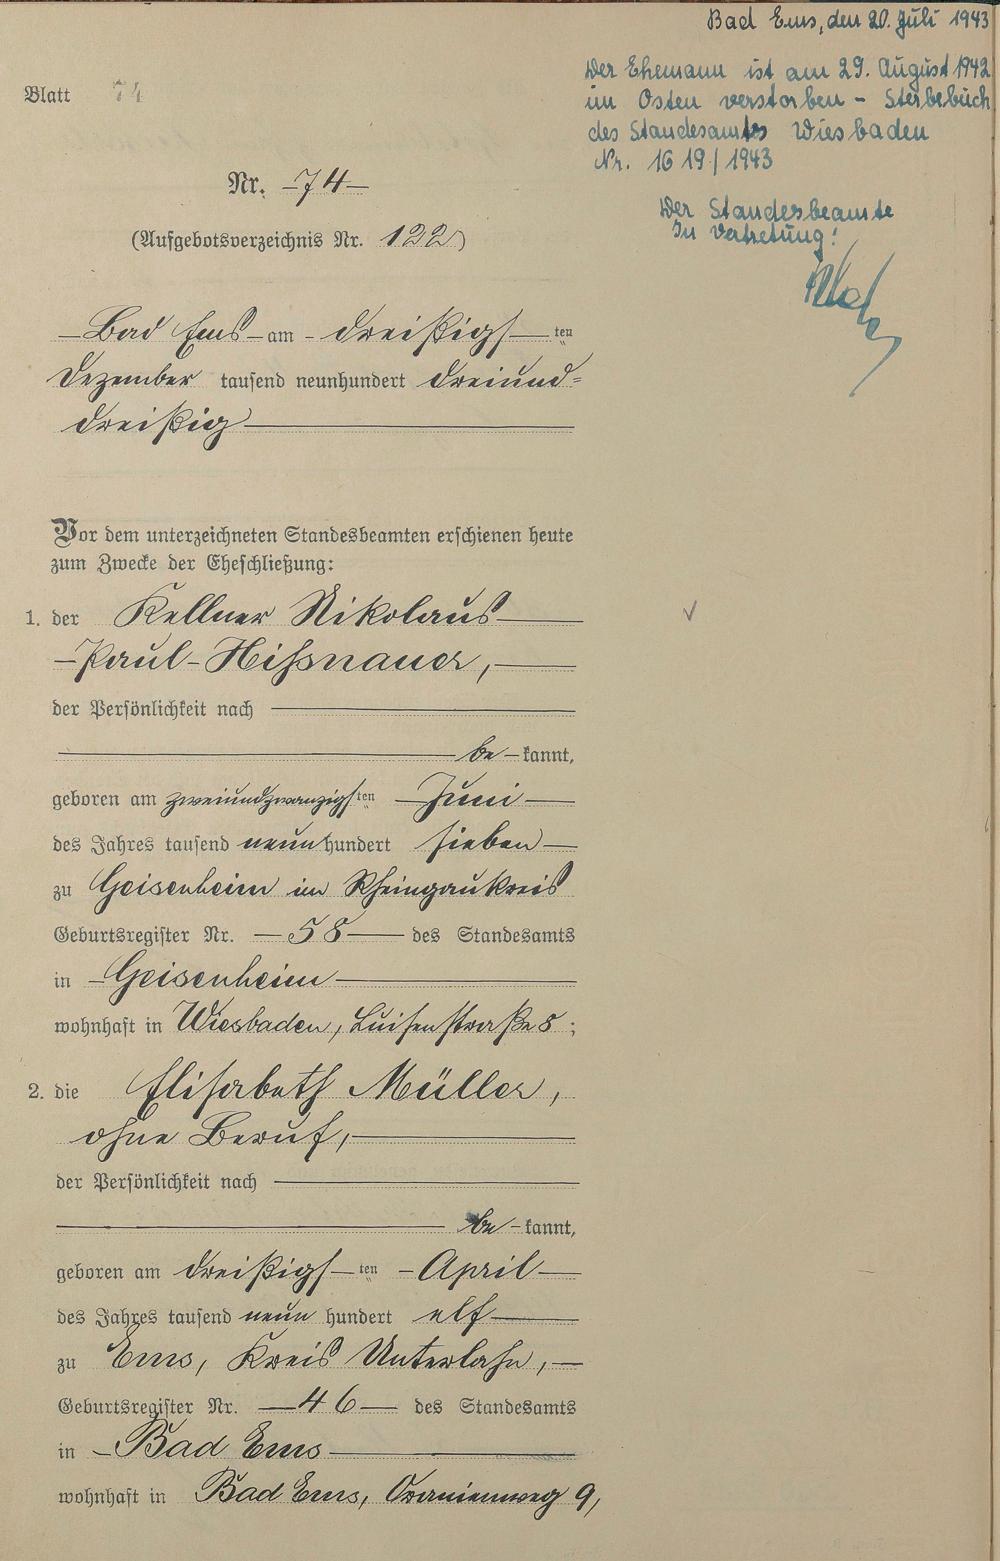 Bad Ems, den 20. Juli 1943
Der Ehemann ist am 29. August 1942
im Osten verstorben - Sterbebuch
des Standesamts Wiesbaden
Nr. 1619/1943
Der Standesbeamte
In Vertretung:
Blatt 74
Nr. 74
(Aufgebotsverzeichnis Nr. 122)
Bad Ems am dreißigsten
Dezember tausend neunhundert dreiund-
dreißig
Vor dem unterzeichneten Standesbeamten erschienen heute
zum Zwecke der Eheschließung:
1. der Kellner Nikolaus
Paul Hißnauer,
der Persönlichkeit nach
be-kannt,
geboren am zweiundzwanzigsten Juni
des Jahres tausend neunhundert sieben
zu Geisenheim im Rheingaukreis
Geburtsregister Nr. 58 des Standesamts
in Geisenheim
wohnhaft in Wiesbaden, Luisenstraße 8;
2. die Elisabeth Müller,
ohne Beruf,
der Persönlichkeit nach
be-kannt,
geboren am dreißigsten April
des Jahres tausend neun hundert elf
zu Ems, Kreis Unterlahn,
Geburtsregister Nr. 46 des Standesamts
in Bad Ems
wohnhaft in Bad Ems, Oranienweg 9,